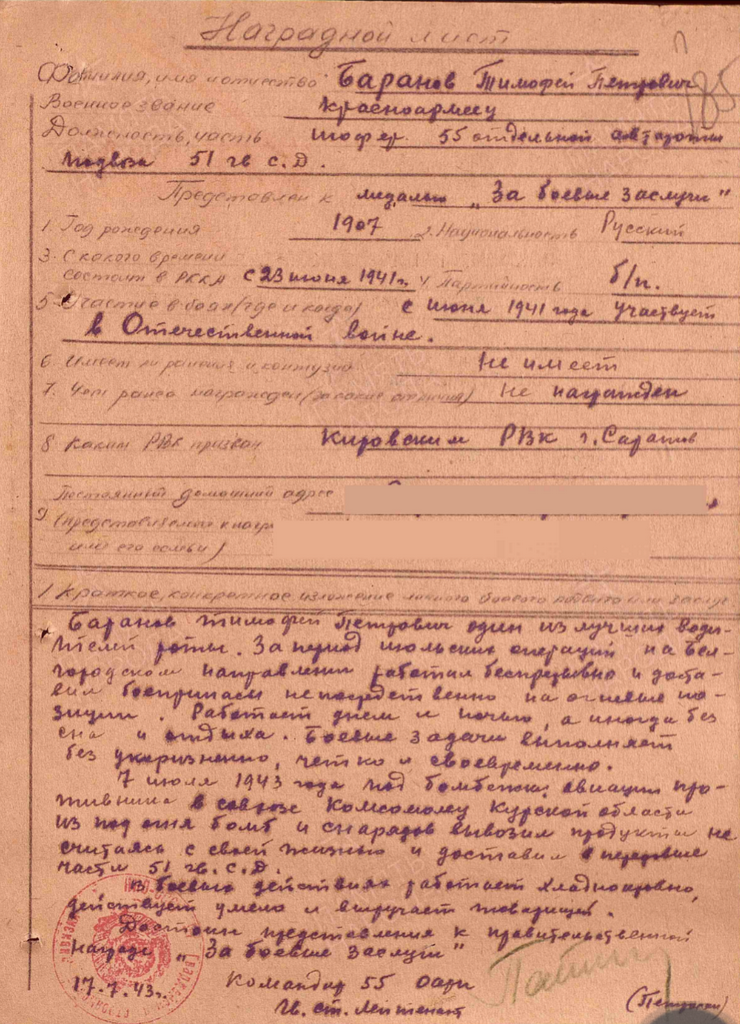 Наградной лист
Фамилия, имя и отчество Баранов Тимофей Петрович
185
Военное звание Красноармеец
Должность, часть шофер 55 отдельной автороты
подвоза 51 гв с.Д.
Представлен к медалью "За боевые заслуги"
1. Год рождения 1907 2. Национальность Русский
3. С какого времени
состоит в РККА с 23 июня 1941 г. 4. Партийность б/п.
5. Участие в боях (где и когда) с июня 1941 года участвует
в Отечественной войне.
6. Имеет ли ранения и контузии Не имеет
7. Чем ранее награжден (за какие отличия) Не награжден
8. Каким РВК призван Кировским РВК г. Саратов
Постоянный домашний адрес
9. (представляемого к нагр
или его семьи)
1 Краткое, конкретное изложение личного боевого подвига или заслуг
Баранов Тимофей Петрович один из лучших води-
телей роты. За период июльских операций на Бел-
городском направлении работал беспрерывно и доста-
вил боеприпасы непосредственно на огневые по-
зиции. Работает днем и ночью, а иногда без
сна и отдыха. Боевые задачи выполняет
без укоризненно, четко и своевременно.
7 июля 1943 года под бомбежкой авиации про-
тивника в совхозе Комсомолец Курской области
из под огня бомб и снарядов вывозил продукты не
считаясь с своей жизнью и доставил в передовые
части 51 гв. с.Д.
в боевых действиях работает хладнокровно,
действует умело и выручает товарищей.
Достоин представления к правительственной
награде "За боевые заслуги"
17.7.43 г. Командир 55 оатр
гв. ст. лейтенант